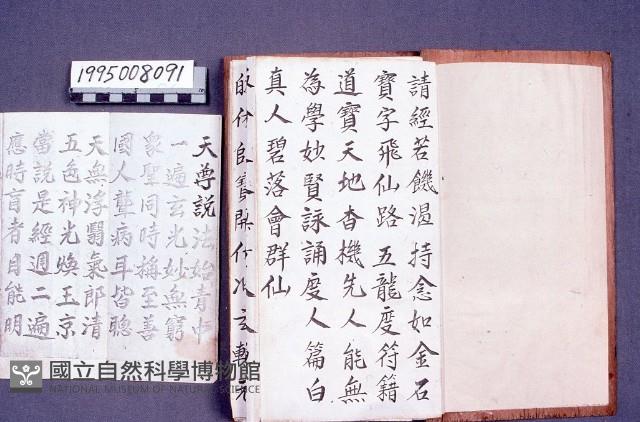 1995008091
請經若饑渴持念如金石
寶字飛仙路五龍度符籍
道寶天地杳機先人能無
為學妙賢詠誦度人篇白
真人碧落會群仙
天尊說法始青中
一遍玄光妙無窮
衆聖同時稱至善
國人聾病耳皆聰
天無浮翳氣郎清
五色神光煥玉京
當說是經週二遍
應時盲者目能明
國立自然科學博物館
NATIONAL MUSEUM OF NATURAL SCIENCE